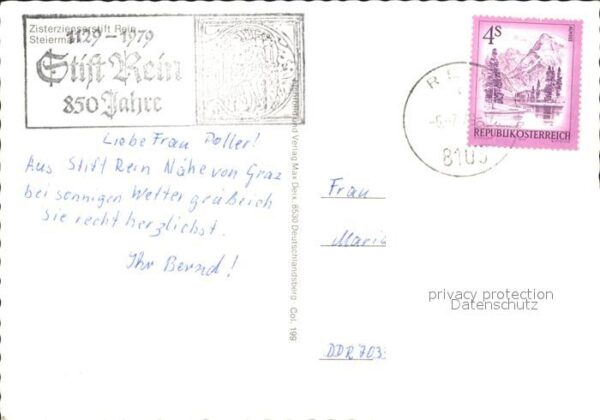 Zisterzienserstift Rein
Steiermark
1129 – 1979
Stift Rein
850 Jahre
Liebe Frau Poller!
Aus Stift Rein Nähe von Graz
bei sonnigen Wetter grüße ich
sie recht herzlichst.
Ihr Bernd!
und Verlag Max Derx 8530 Deutschlandsberg Col. 199
4S
REPUBLIK ÖSTERREICH
RE
8103
Frau
Maria
DDR 703
privacy protection
Datenschutz